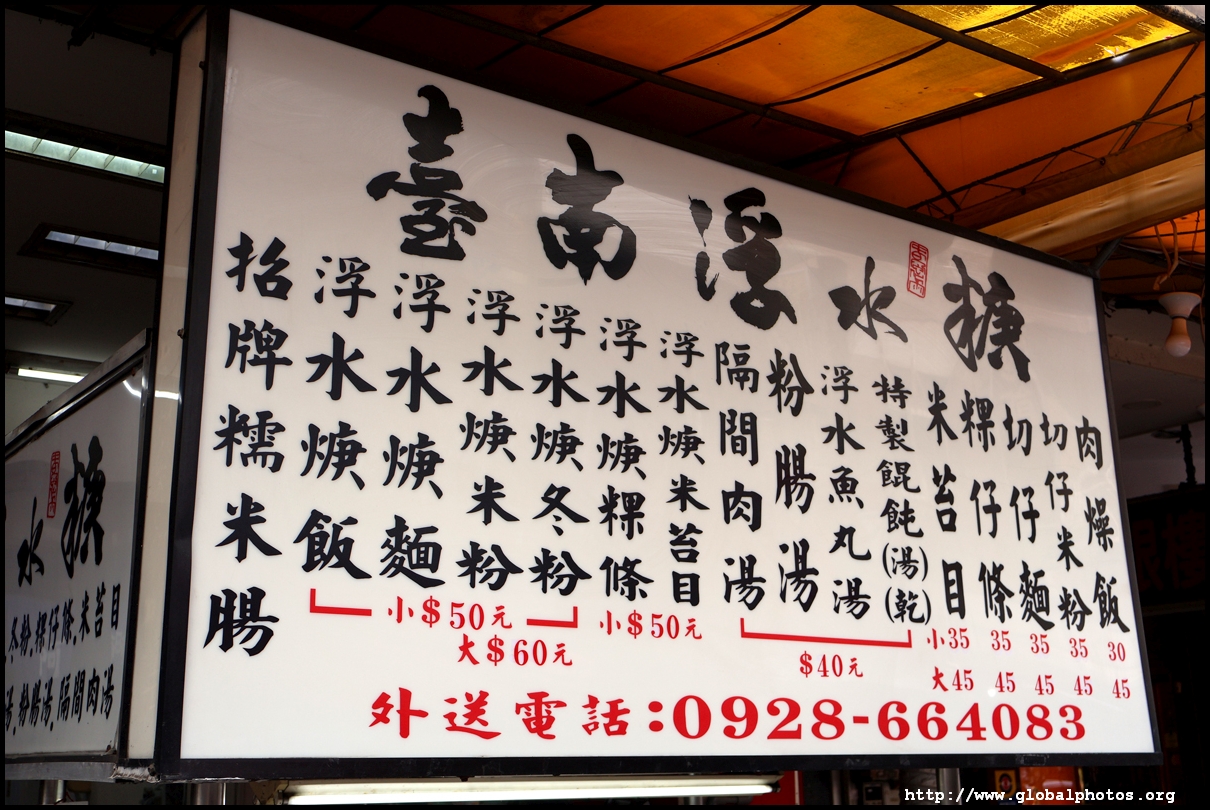 臺南浮水
招牌糯米腸
浮水焿飯
浮水焿麵
浮水焿米粉
浮水焿冬粉
浮水焿粿條
浮水焿米苔目
隔間肉湯
粉腸湯
浮水魚丸湯
特製餛飩(湯)(乾)
米苔目
粿仔條
切仔麵
切仔米粉
肉燥飯
小$50元
大$60元
小$50元
$40元
小35 35 35 35 30
大45 45 45 45 45
外送電話:0928-664083
水
冬粉.粿仔條.米苔目
湯.粉腸湯.隔間肉湯
http://www.globalphotos.org